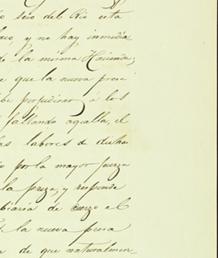 seno del Rio esta
y no hay inmedia
de la misma Hacienda
e que la nueva presa
be perjudicar á los
faltando aquella, el
las labores de dicha
io por la mayor fuerza
la preza, y responde
biaria de cuerpo el
la nueva presa
a de que naturalmen